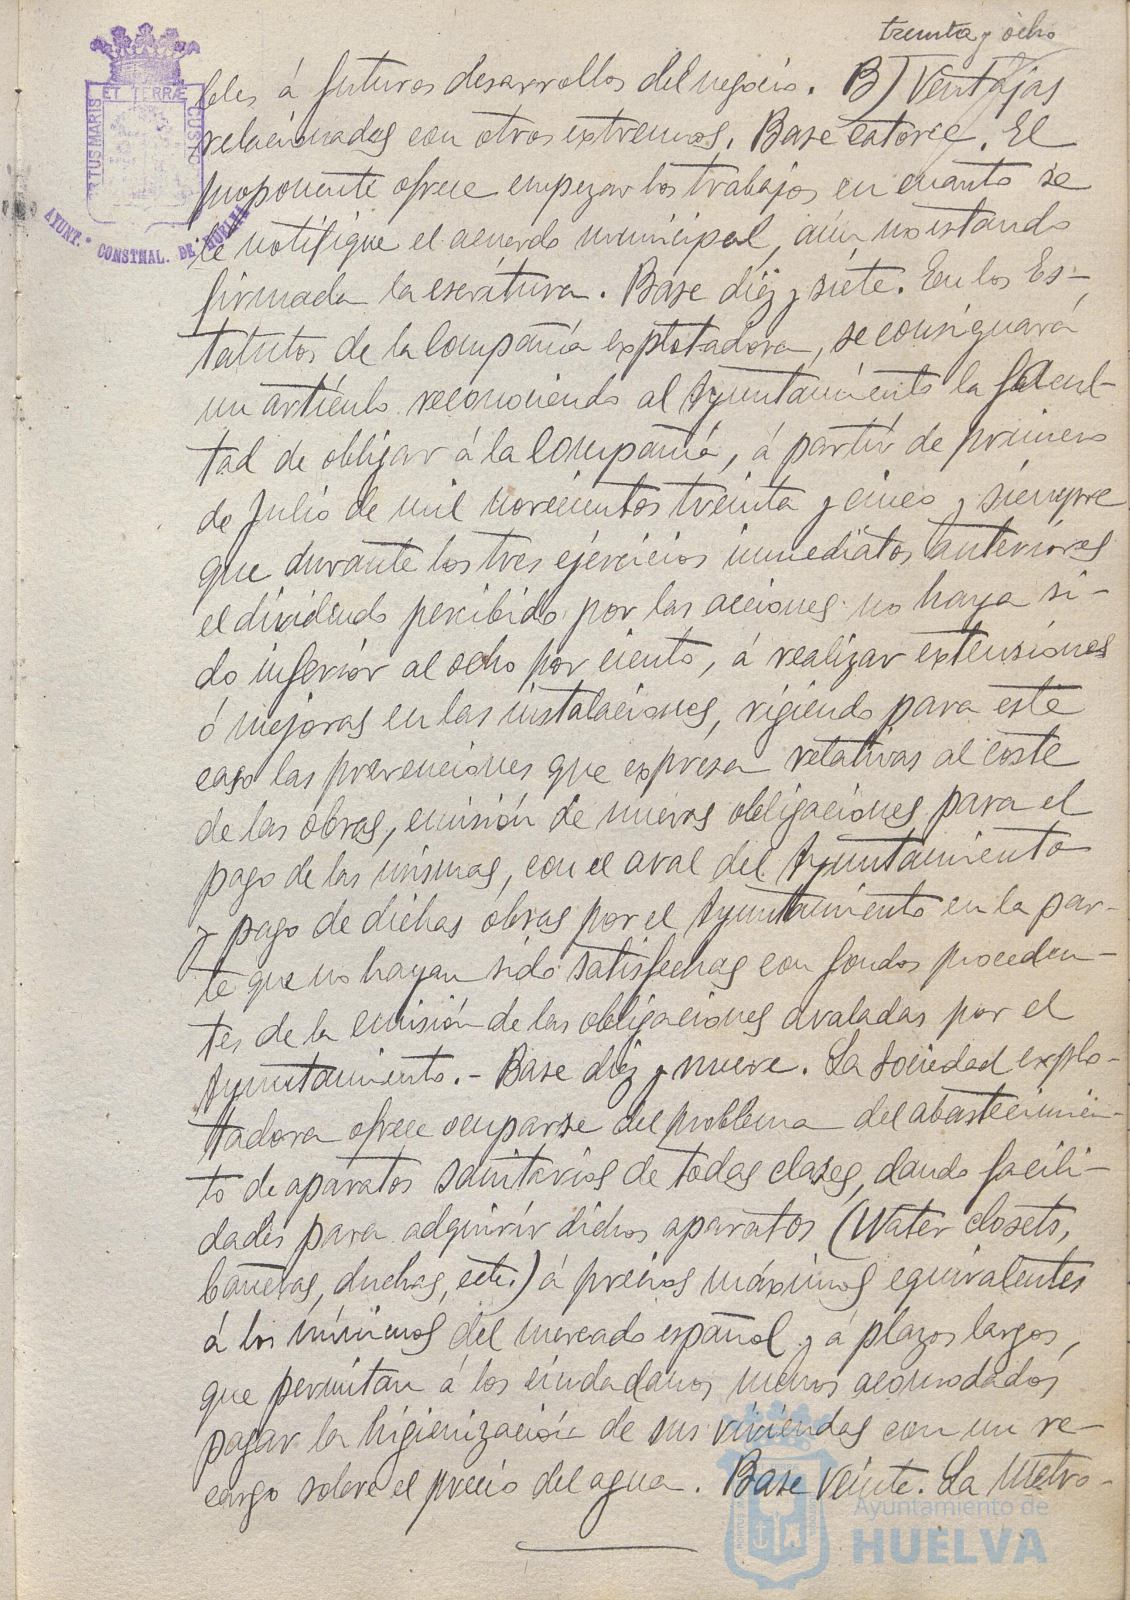 treinta y ocho
bles á futuros desarrollos del negocio. B) Ventajas
relacionadas con otros extremos. Base catorce. El
proponente ofrece empezar los trabajos en cuanto se
le notifique el acuerdo municipal, aún no estando
firmada la escritura. Base diez y siete. En los Es-
tatutos de la Compañía explotadora, se consignará
un artículo reconociendo al Ayuntamiento la facul-
tad de obligar á la Compañía, á partir de primero
de Julio de mil novecientos treinta y cinco y siempre
que durante los tres ejercicios inmediatos anteriores
el dividendo percibido por las acciones no haya si-
do inferior al ocho por ciento, á realizar extensiones
ó mejoras en las instalaciones, rigiendo para este
caso las prevenciones que expresa relativas al coste
de las obras, emisión de nuevas obligaciones para el
pago de las mismas, con el aval del Ayuntamiento
y pago de dichas obras por el Ayuntamiento en la par-
te que no hayan sido satisfechas con fondos proceden-
tes de la emisión de las obligaciones avaladas por el
Ayuntamiento.- Base diez y nueve. La Sociedad explo-
tadora ofrece ocuparse del problema del abastecimien-
to de aparatos sanitarios de todas clases, dando facili-
dades para adquirir dichos aparatos (Water closets,
bañeras, duchas, etc.) á precios máximos equivalentes
á los mínimos del mercado español y á plazos largos,
que permitan á los ciudadanos menos acomodados
pagar la higienización de sus viviendas con un re-
cargo sobre el precio del agua. Base veinte. La Metro-
ET TERRÆ
CUSTO
TUS MARIS
AYUNT.º CONSTNAL. DE HUELVA
Ayuntamiento de
HUELVA